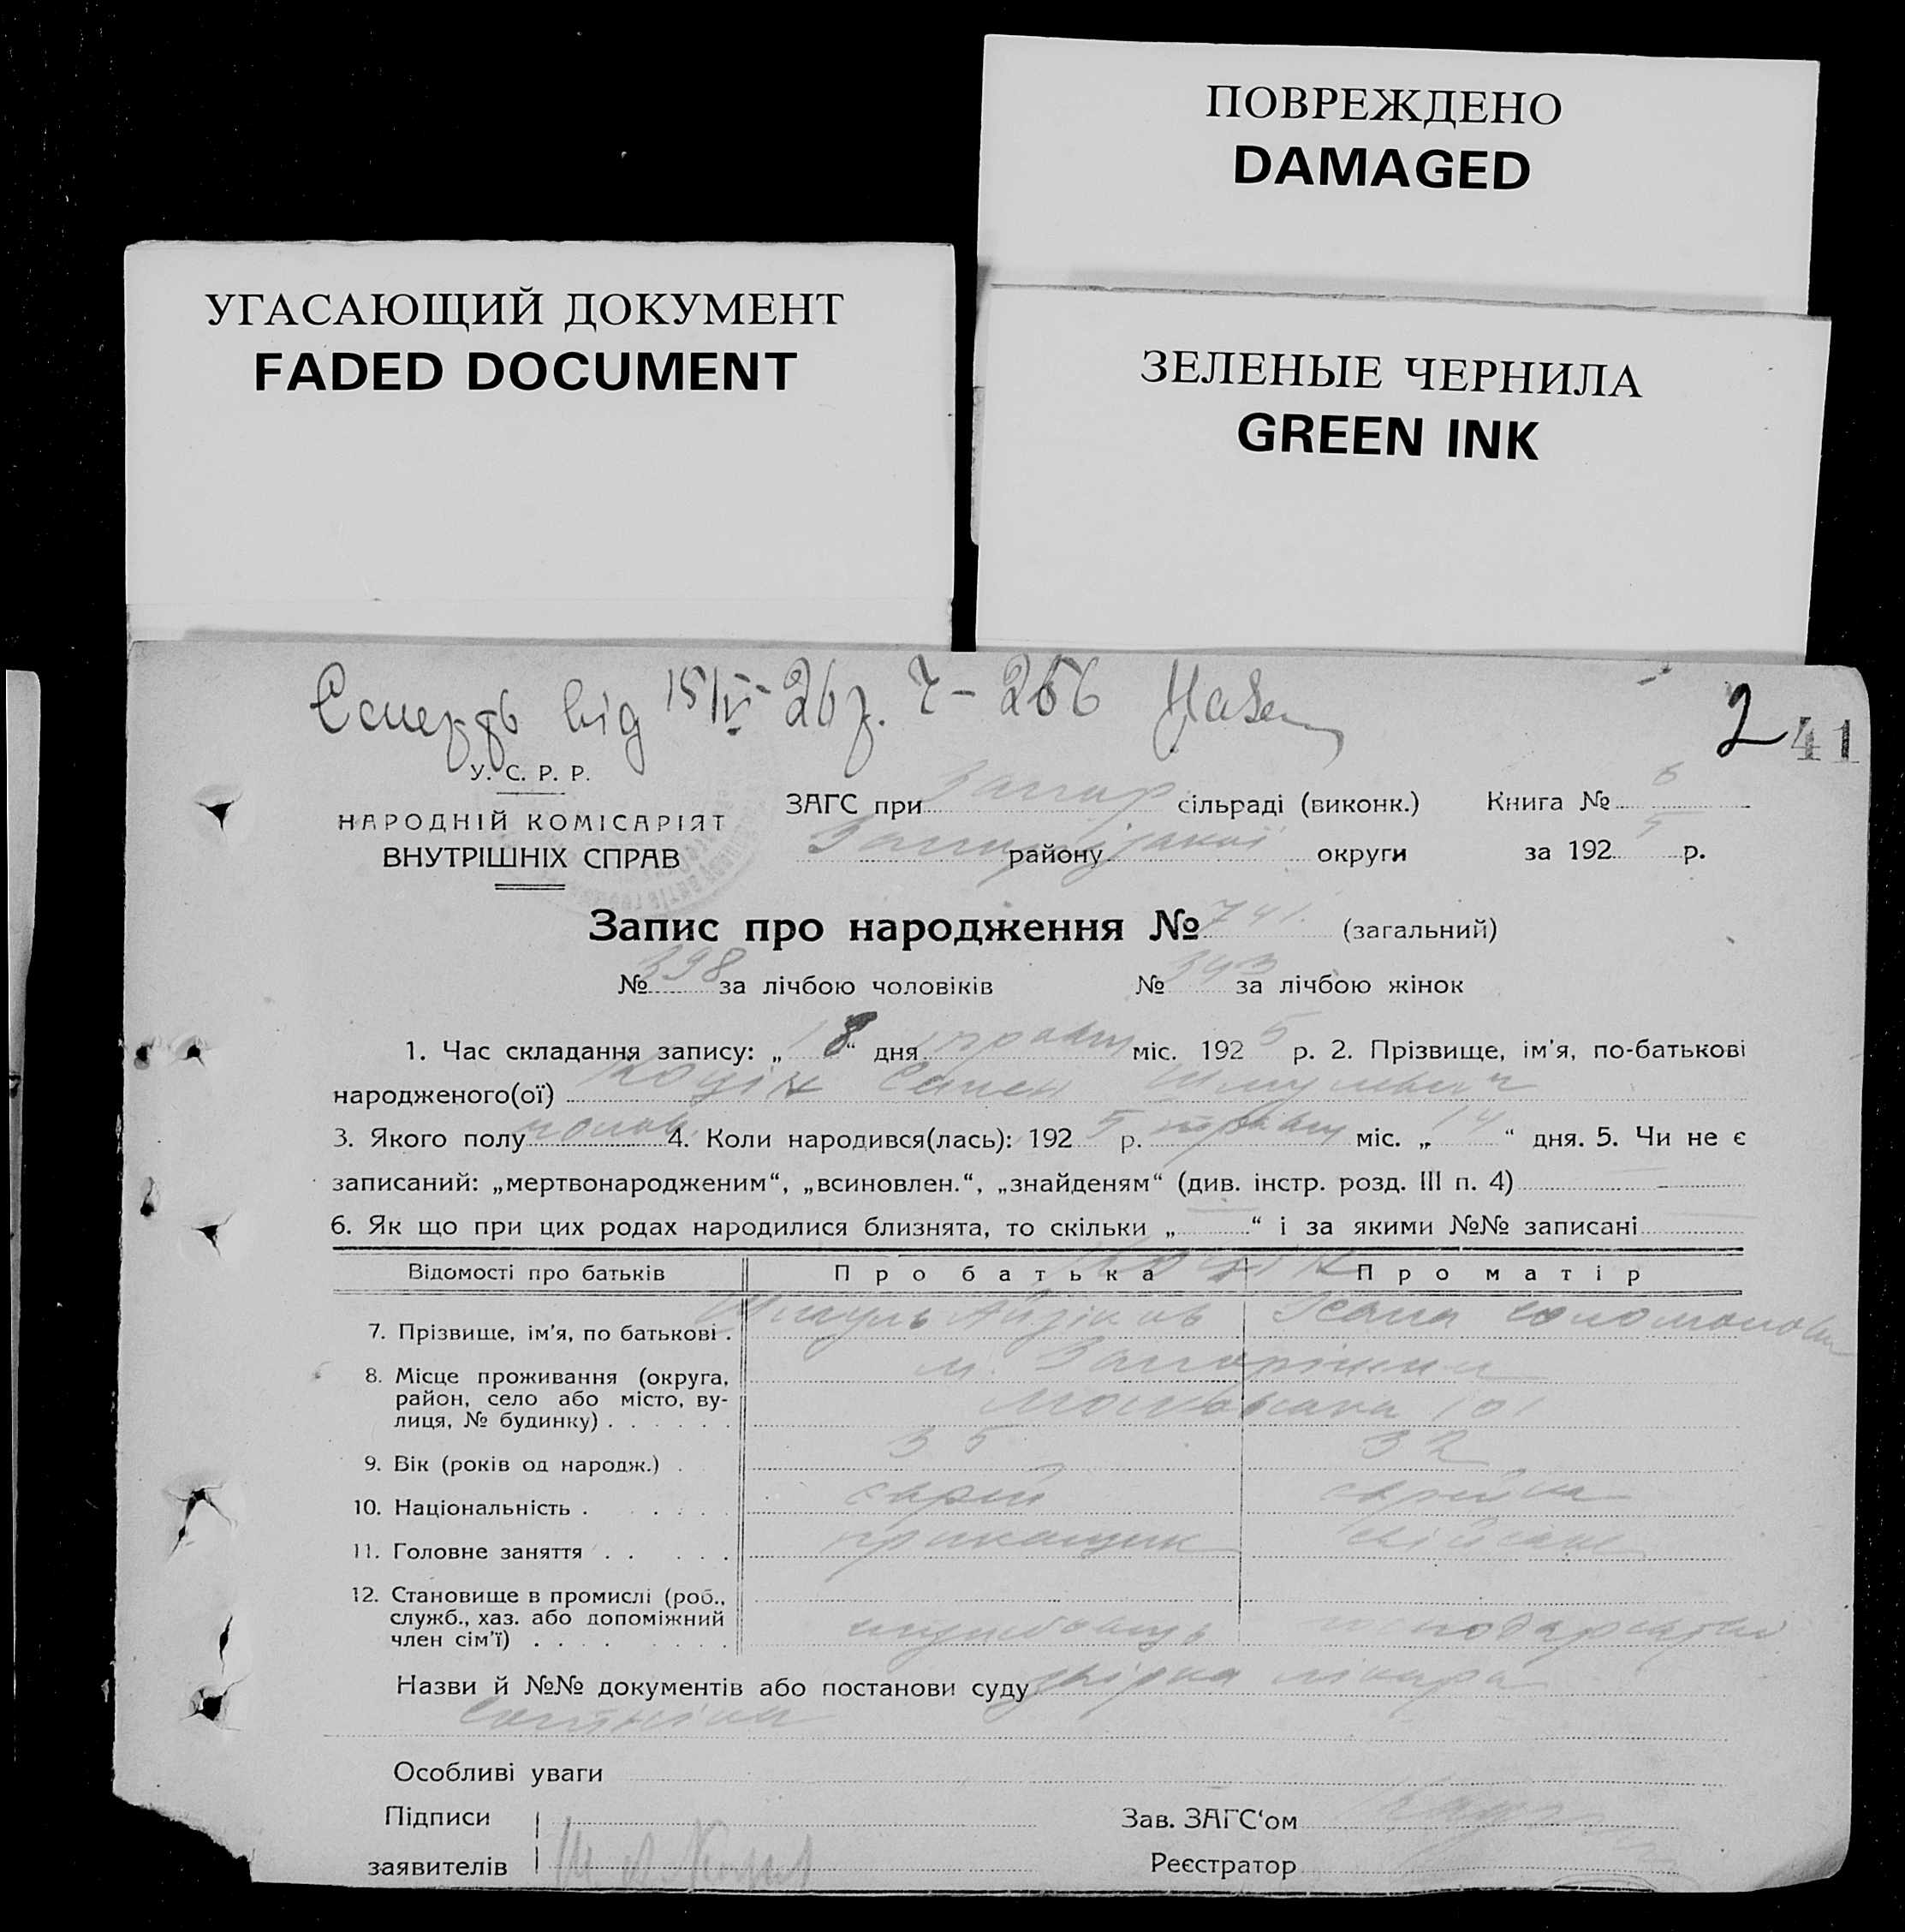 ПОВРЕЖДЕНО
DAMAGED
УГАСАЮЩИЙ ДОКУМЕНТ
FADED DOCUMENT
ЗЕЛЕНЫЕ ЧЕРНИЛА
GREEN INK
Є смерть від 15/IV-26 р. Ч-266
2 41
У. С. Р. Р.
НАРОДНІЙ КОМІСАРІЯТ
ВНУТРІШНІХ СПРАВ
ЗАГС при Запор сільраді (виконк.) Книга № 6
району округи за 192 5 р.
Запис про народження № 741. (загальний)
№ 398 за лічбою чоловіків № 343 за лічбою жінок
1. Час складання запису: „ 18 “ дня травн міс. 192 5 р. 2. Прізвище, ім'я, по-батькові
народженого(ої) Коцін Семен Шмульович
3. Якого полу чолов. 4. Коли народився(лась): 192 5 р. травн міс. „ 14 “ дня. 5. Чи не є
записаний: „мертвонародженим“, „всиновлен.“, „знайденям“ (див. інстр. розд. III п. 4)
6. Як що при цих родах народилися близнята, то скільки „ “ і за якими №№ записані
Відомості про батьків Про батька Про матір
Коцін
7. Прізвище, ім'я, по батькові . Шмуль Айзіков
8. Місце проживання (округа, м. Запоріжжя
район, село або місто, ву-
лиця, № будинку) . . . . . . Московська 101
9. Вік (років од народж.) . 35 32
10. Національність . . . . . єврей єврейка
11. Головне заняття . . . . . прикащик
12. Становище в промислі (роб.,
служб., хаз. або допоміжний
член сім'ї) . . . . . . . . службовець
Назви й №№ документів або постанови суду лікаря
Особливі уваги
Підписи Зав. ЗАГС‘ом
заявителів Реєстратор